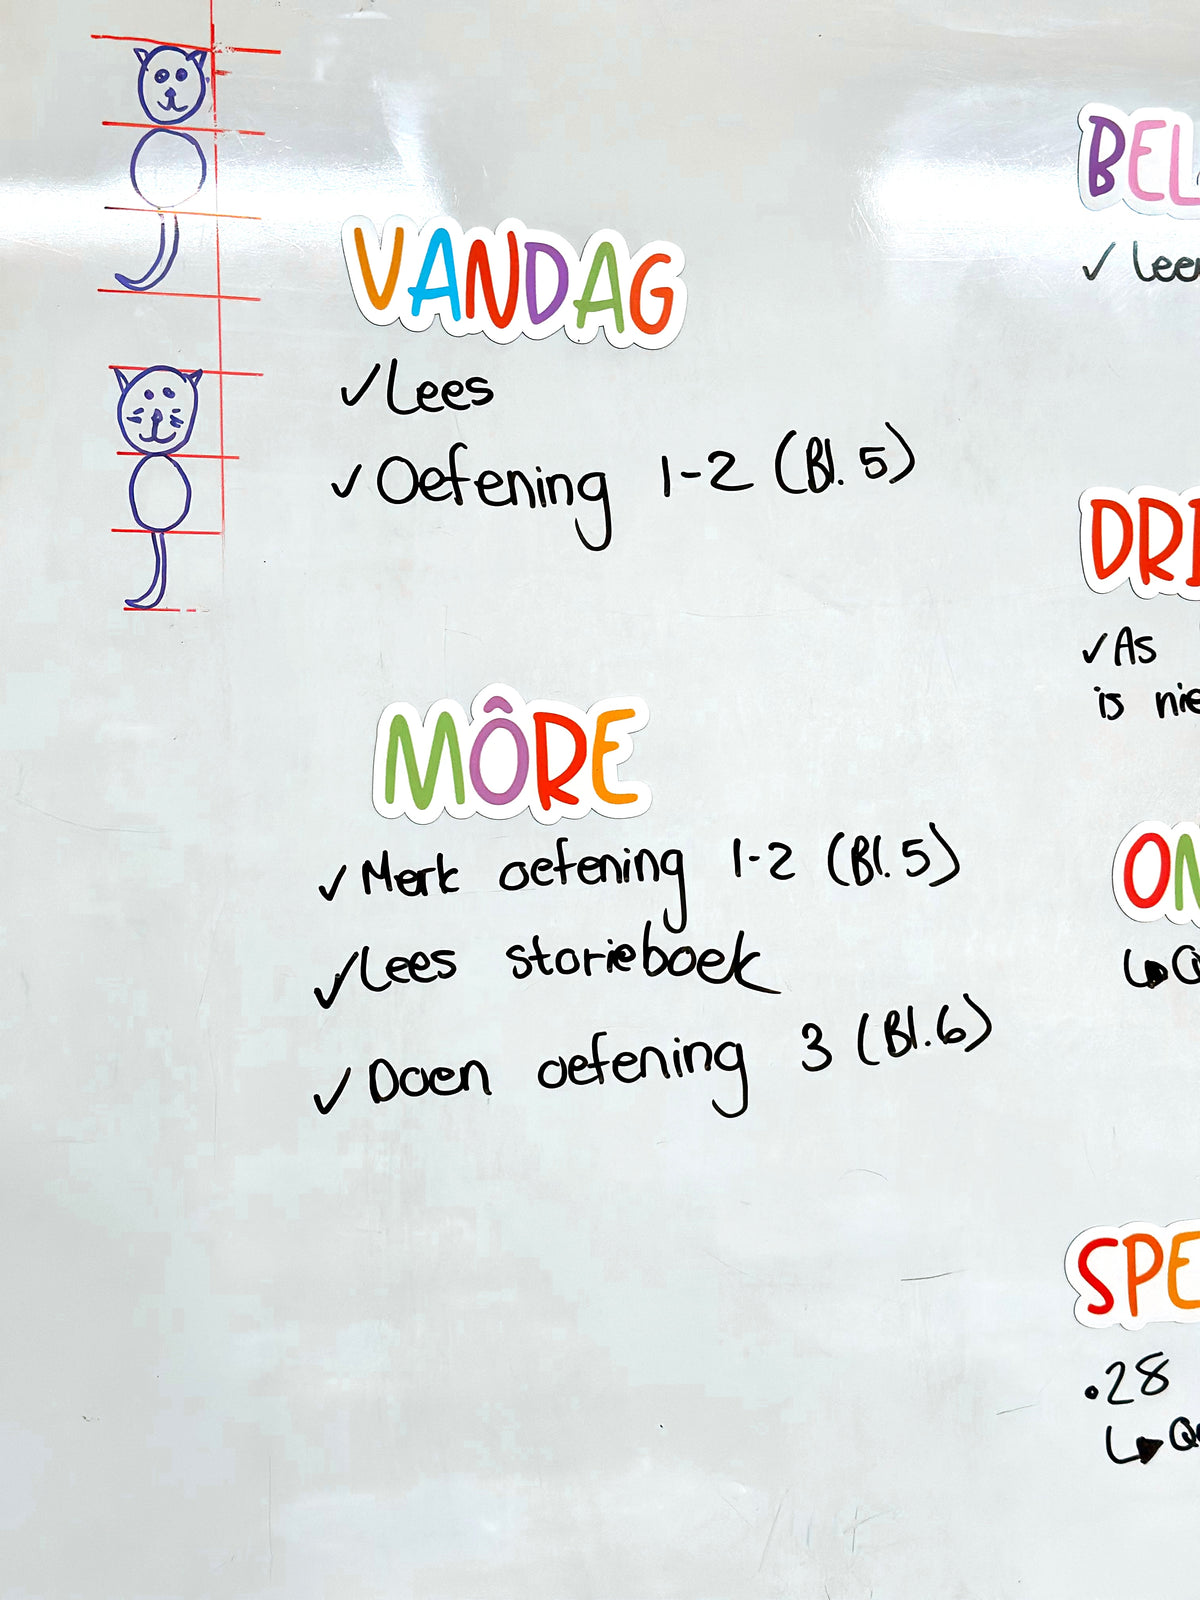 VANDAG
✓ Lees
✓ Oefening 1-2 (Bl. 5)
MÔRE
✓ Merk oefening 1-2 (Bl. 5)
✓ Lees storieboek
✓ Doen oefening 3 (Bl. 6)
✓ As
is
.28